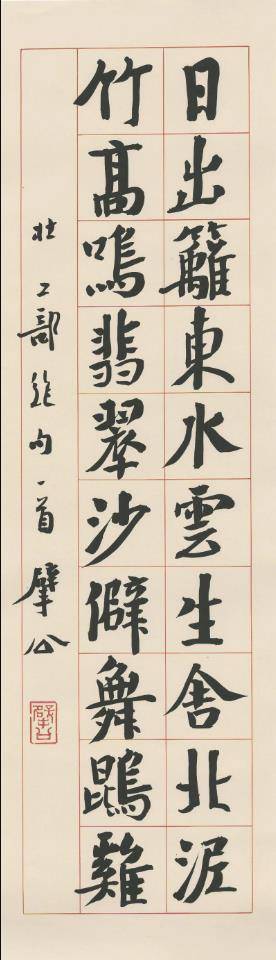 日出籬東水雲生舍北泥
竹高鳴翡翠沙僻舞鵾雞
杜工部絕句一首 擘公